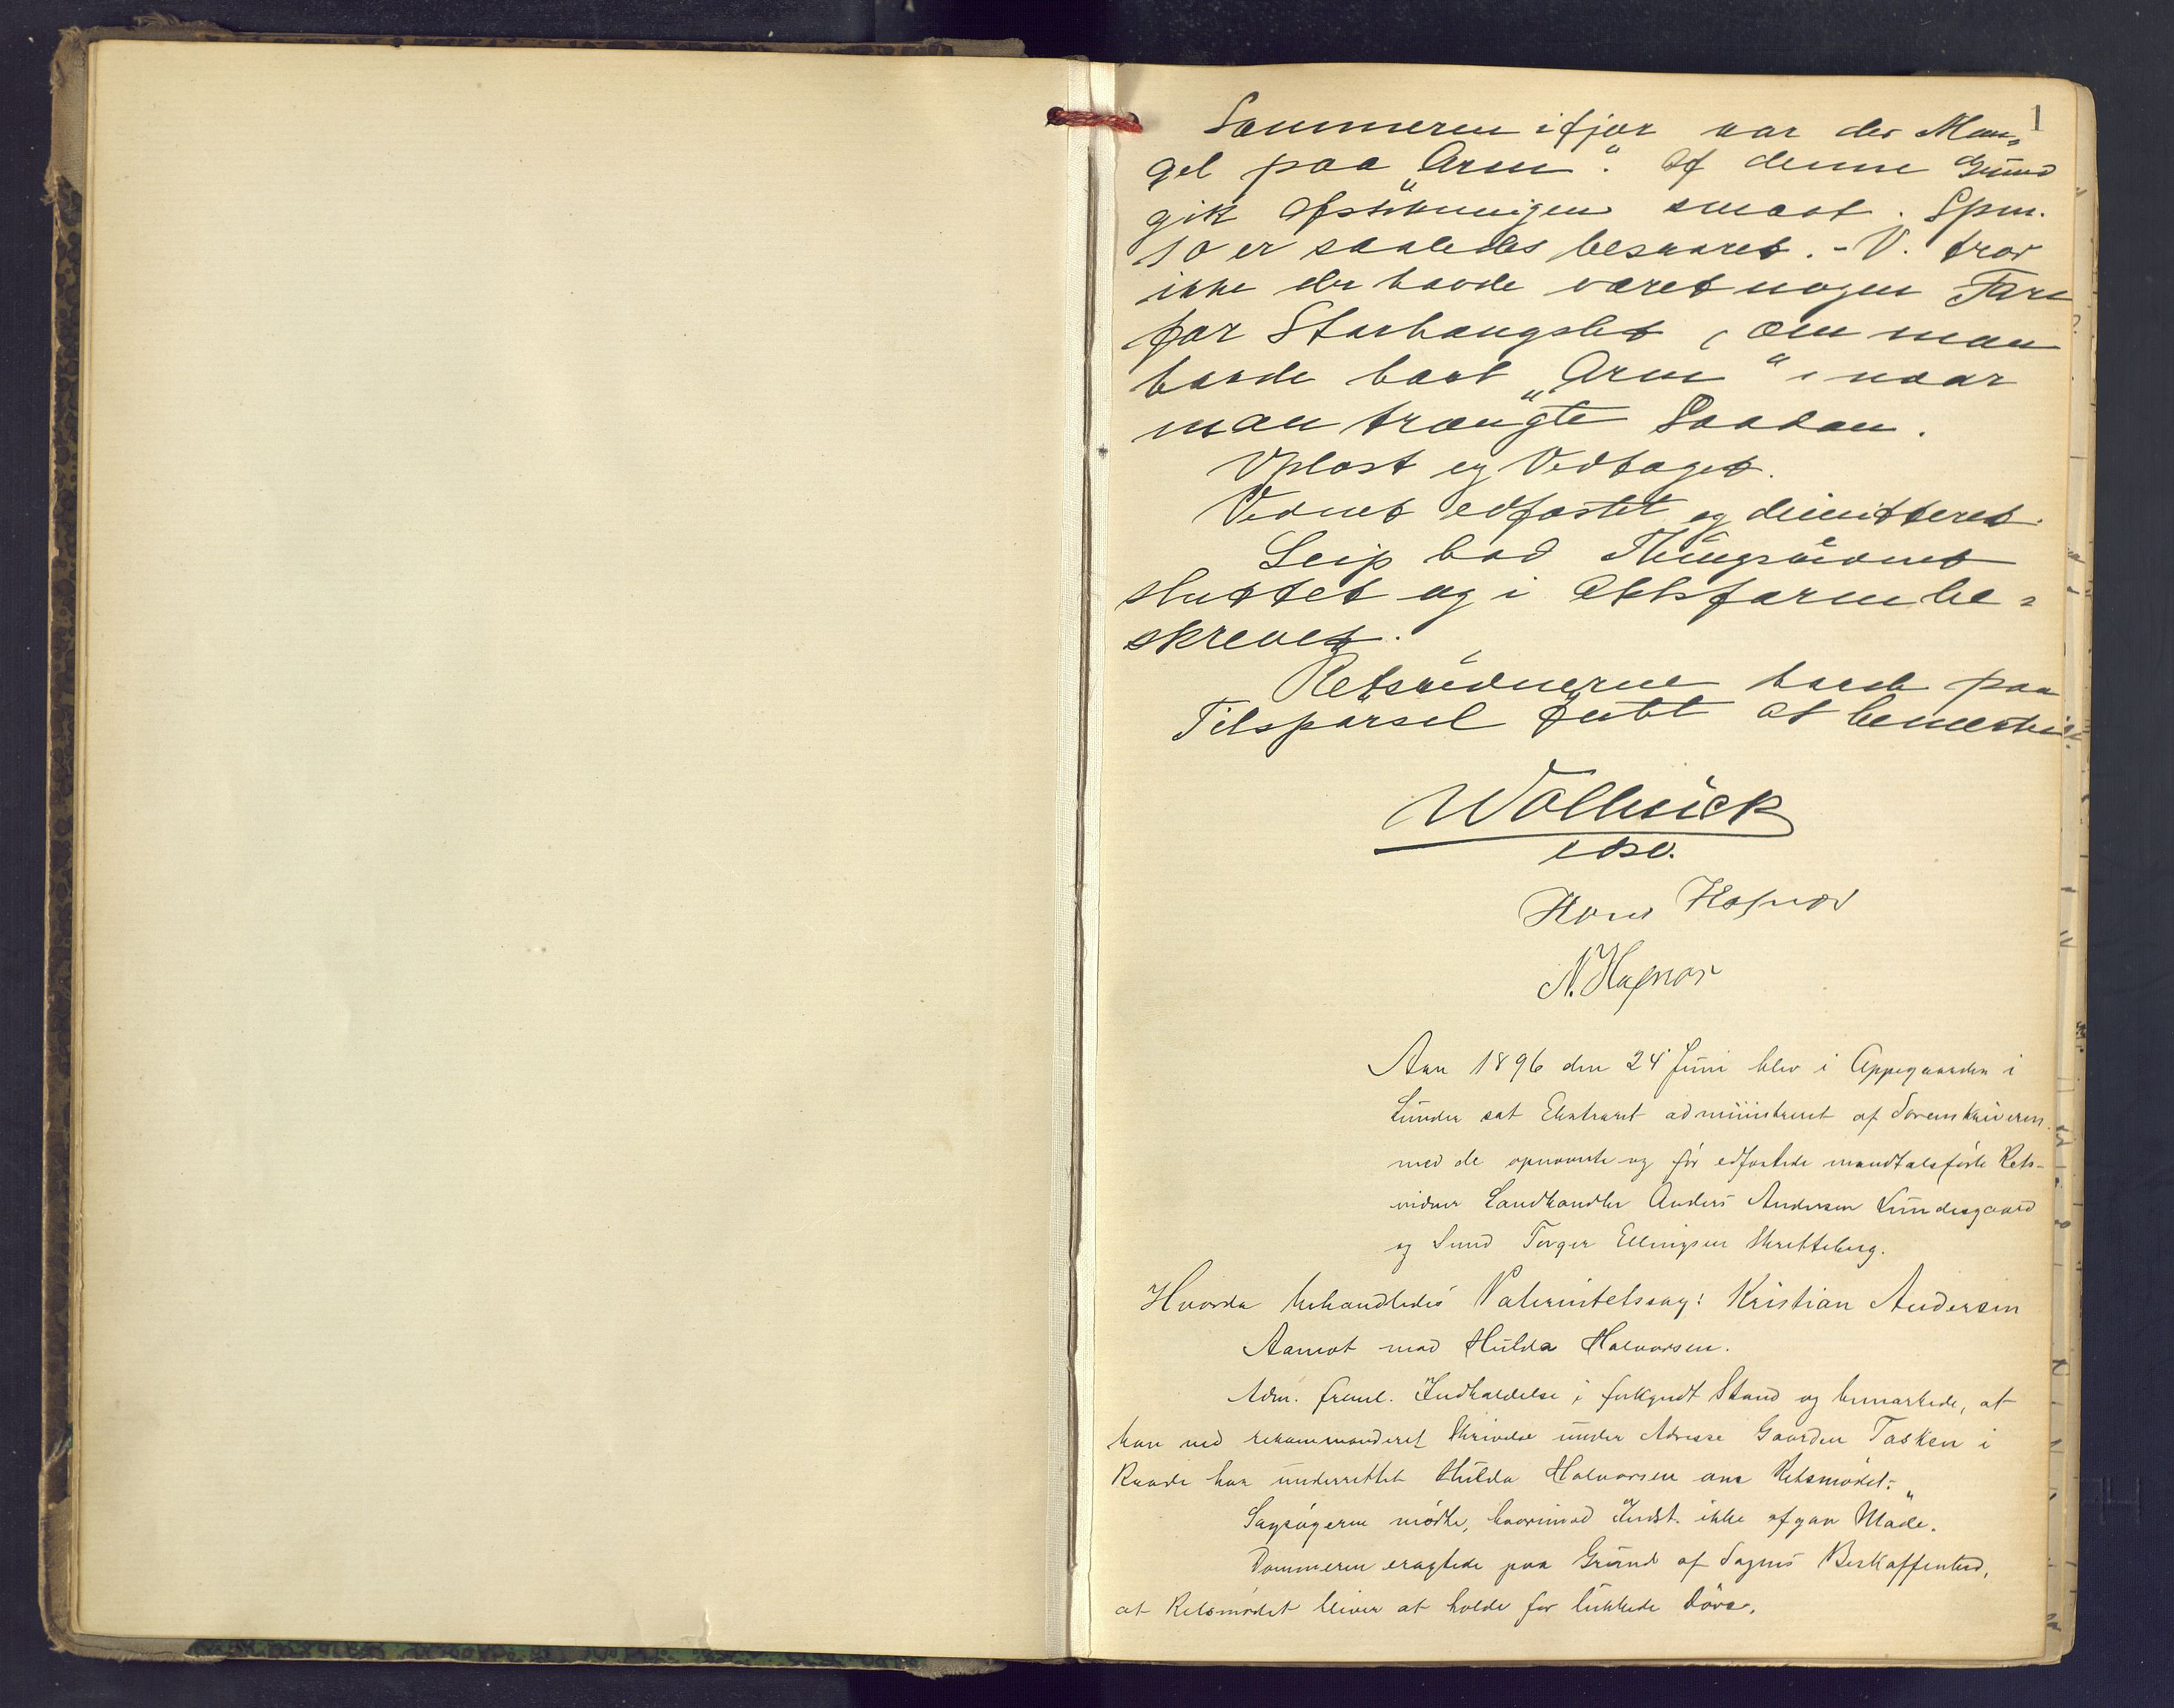 1
Sommeren ifjor var der Man-
gel paa „Arm“. Af denne Grund
gik Afstikningen smaat. Spm.
10 er saaledes besvaret. - V. tror
ikke der havde været nogen Fare
for Storhangslet, om man
havde havt „Arm“, naar
man trængte Saadan.
Oplæst og Vedtaget.
Vidnet edfæstet og dimitteret.
Leip bad Thingsvidnet
sluttet og i Aktsform be-
skrevet.
Retsvidnerne havde paa
Tilspørsel Intet at bemerke.
Wollnick
edsv.
Hans Hafnor
N. Hafnor
Aar 1896 den 24 Juni blev i Oppegaarden i
Lunder sat Ekstraret administreret af Sorenskriveren
med de opnævnte og før edfæstede mandtalsførte Rets-
vidner Landhandler Anders Andersen Lundesgaard
og Lund Torger Ellingsen Skretteberg.
Hvorda behandledes Paternitetssag: Kristian Andersen
Aamot mod Hulda Halvorsen.
Adm. freml. Indkaldelse i forkyndt Stand og bemærkede, at
han ved rekommanderet Skrivelse under Adresse Gaarden Tasken i
Raade har underrettet Hulda Halvorsen om Retsmødet.
Sagsøgeren mødte, hvorimod Indst. ikke afgav Møde.
Dommeren eragtede paa Grund af Sagens Beskaffenhed,
at Retsmødet bliver at holde for lukkede Døre.